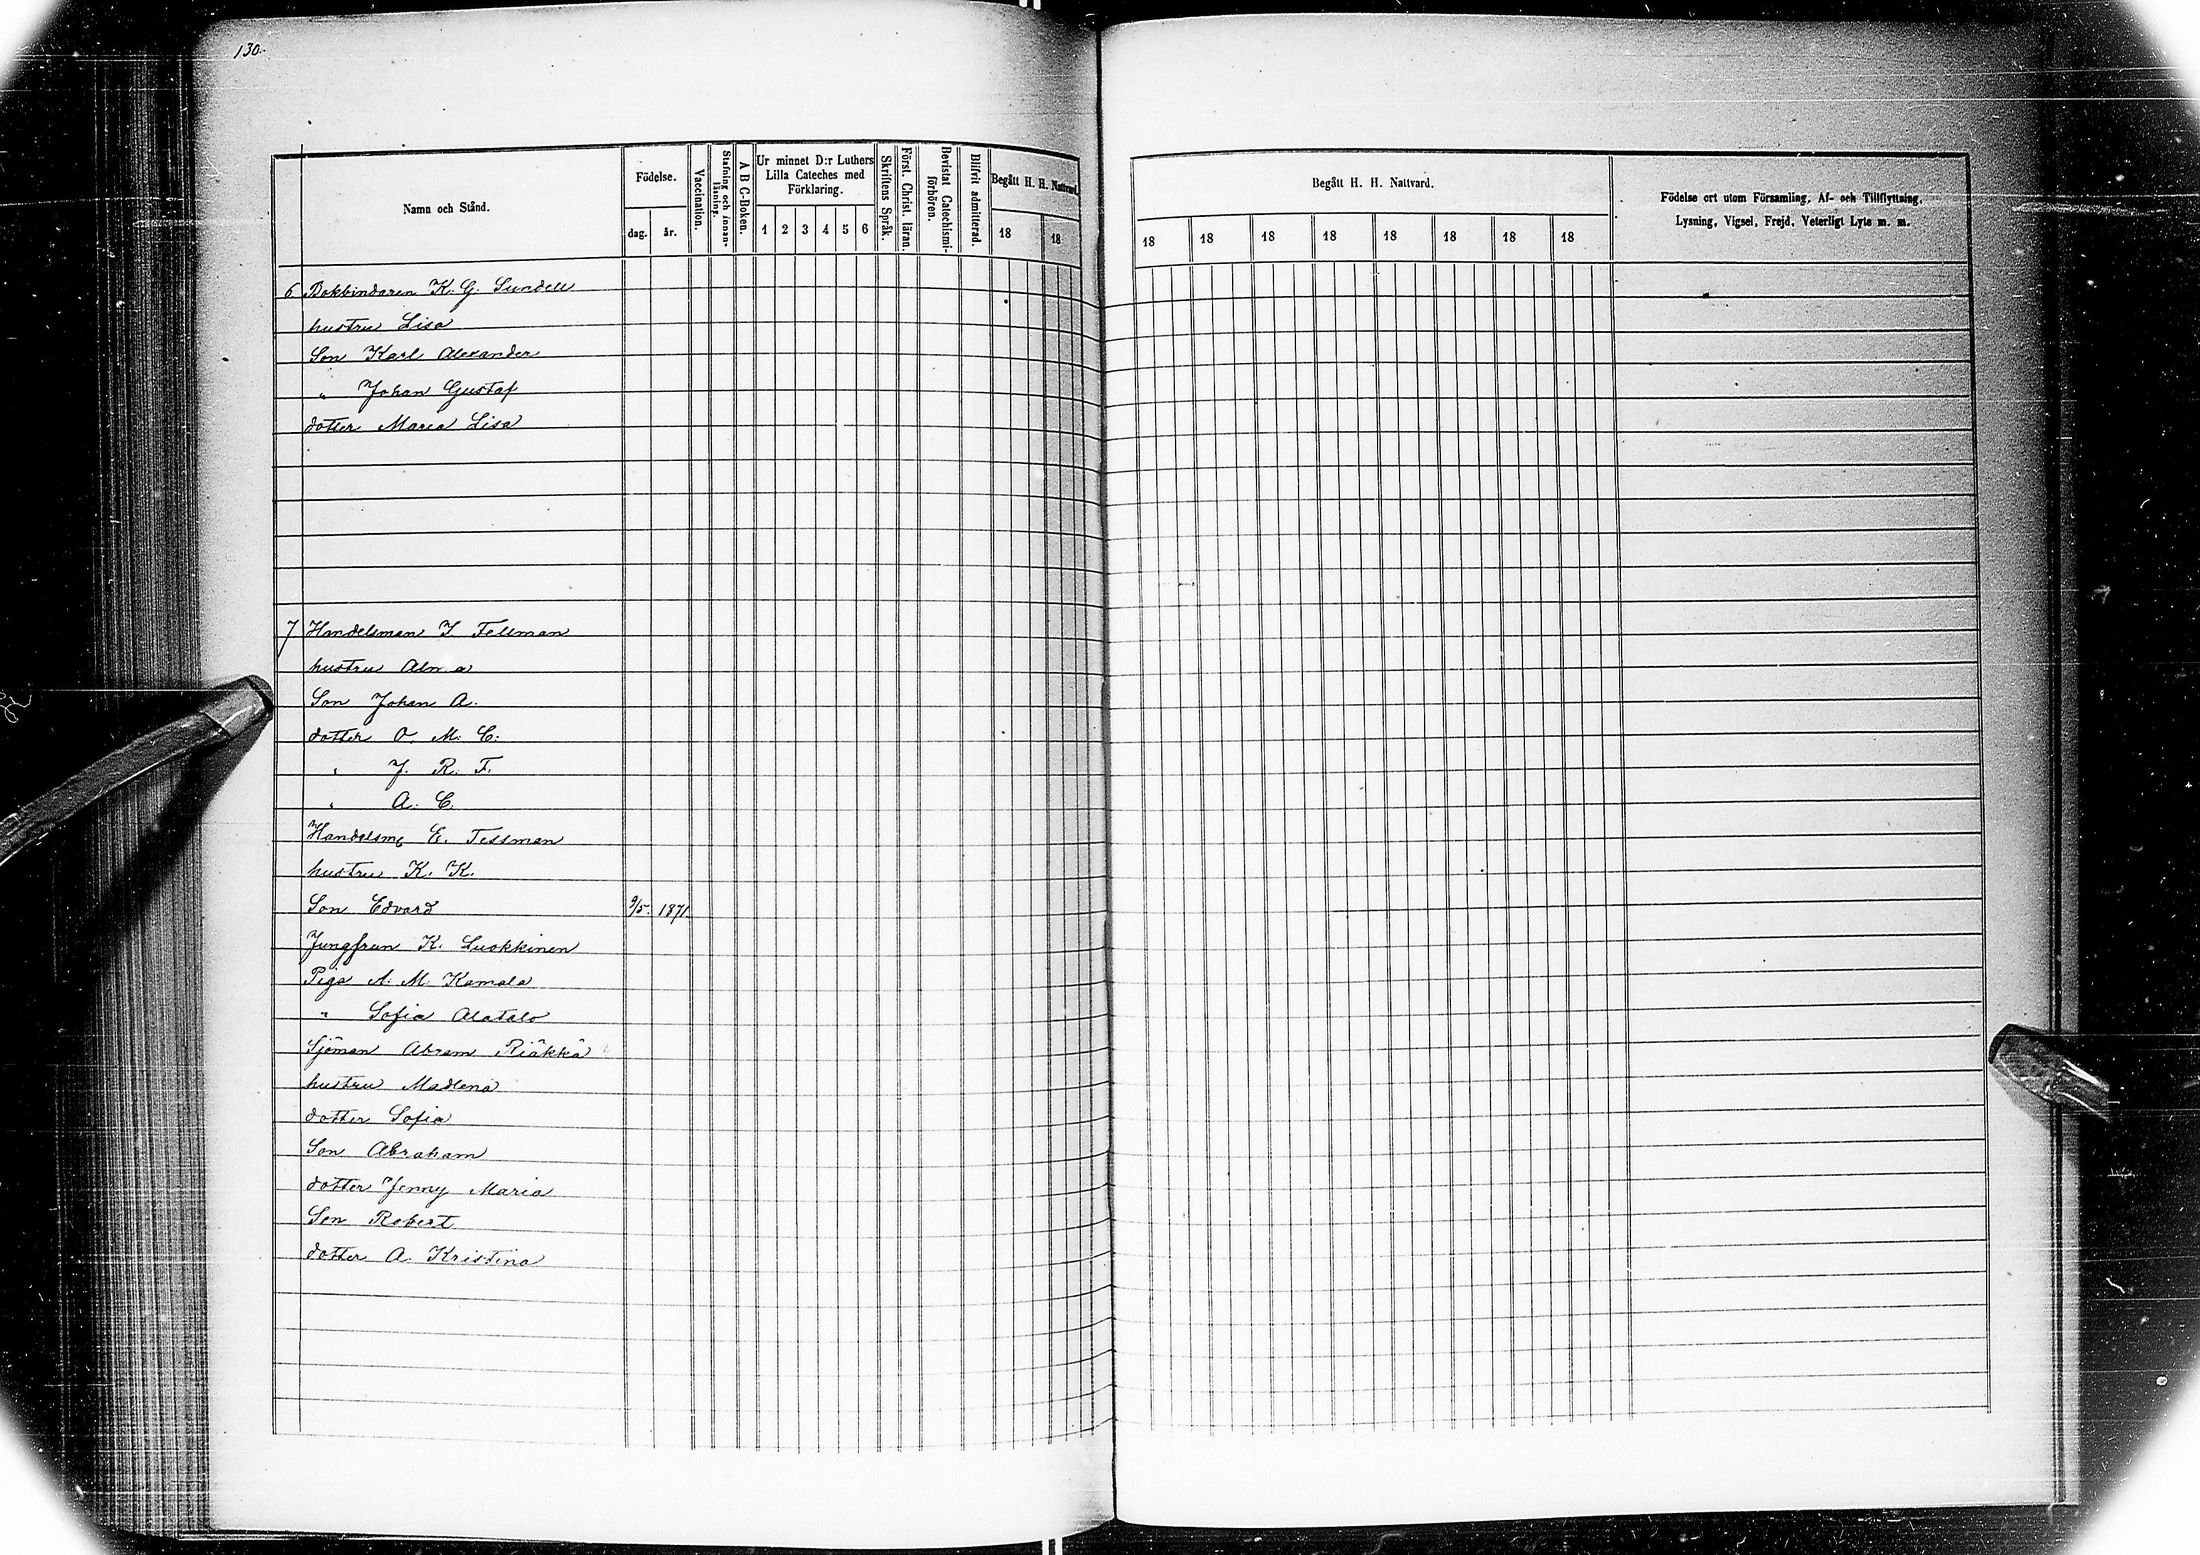 130.
Namn och Stånd.
Födelse.
dag.
år.
Vaccination.
Stafning och innan-
läsning.
A B C-Boken.
Ur minnet D:r Luthers
Lilla Cateches med
Förklaring.
1 2 3 4 5 6
Skriftens Språk.
Först. Christ. läran.
Bevistat Catechismi-
förhören.
Blifvit admitterad.
Begått H. H. Nattvard.
18 18
Begått H. H. Nattvard.
18 18 18 18 18 18 18 18
Födelse ort utom Församling, Af- och Tillflyttning,
Lysning, Vigsel, Frejd, Veterligt Lyte m. m.
6 Bokbindaren K. G. Sundell
hustru Lisa
Son Karl Alexander
" Johan Gustaf
dotter Maria Lisa
7 Handelsman J Fellman
hustru Alma
Son Johan A.
dotter O. M. C.
" J. R. F.
" A. C.
Handelsm E. Fessman
hustru K. K.
Son Edvard 9/5. 1871
Jungfrun K. Luokkinen
Piga A. M. Kamala
" Sofia Alatalo
Sjöman Abram Riäkkä
hustru Madlena
dotter Sofia
Son Abraham
dotter Jenny Maria
Son Robert
dotter A. Kristina